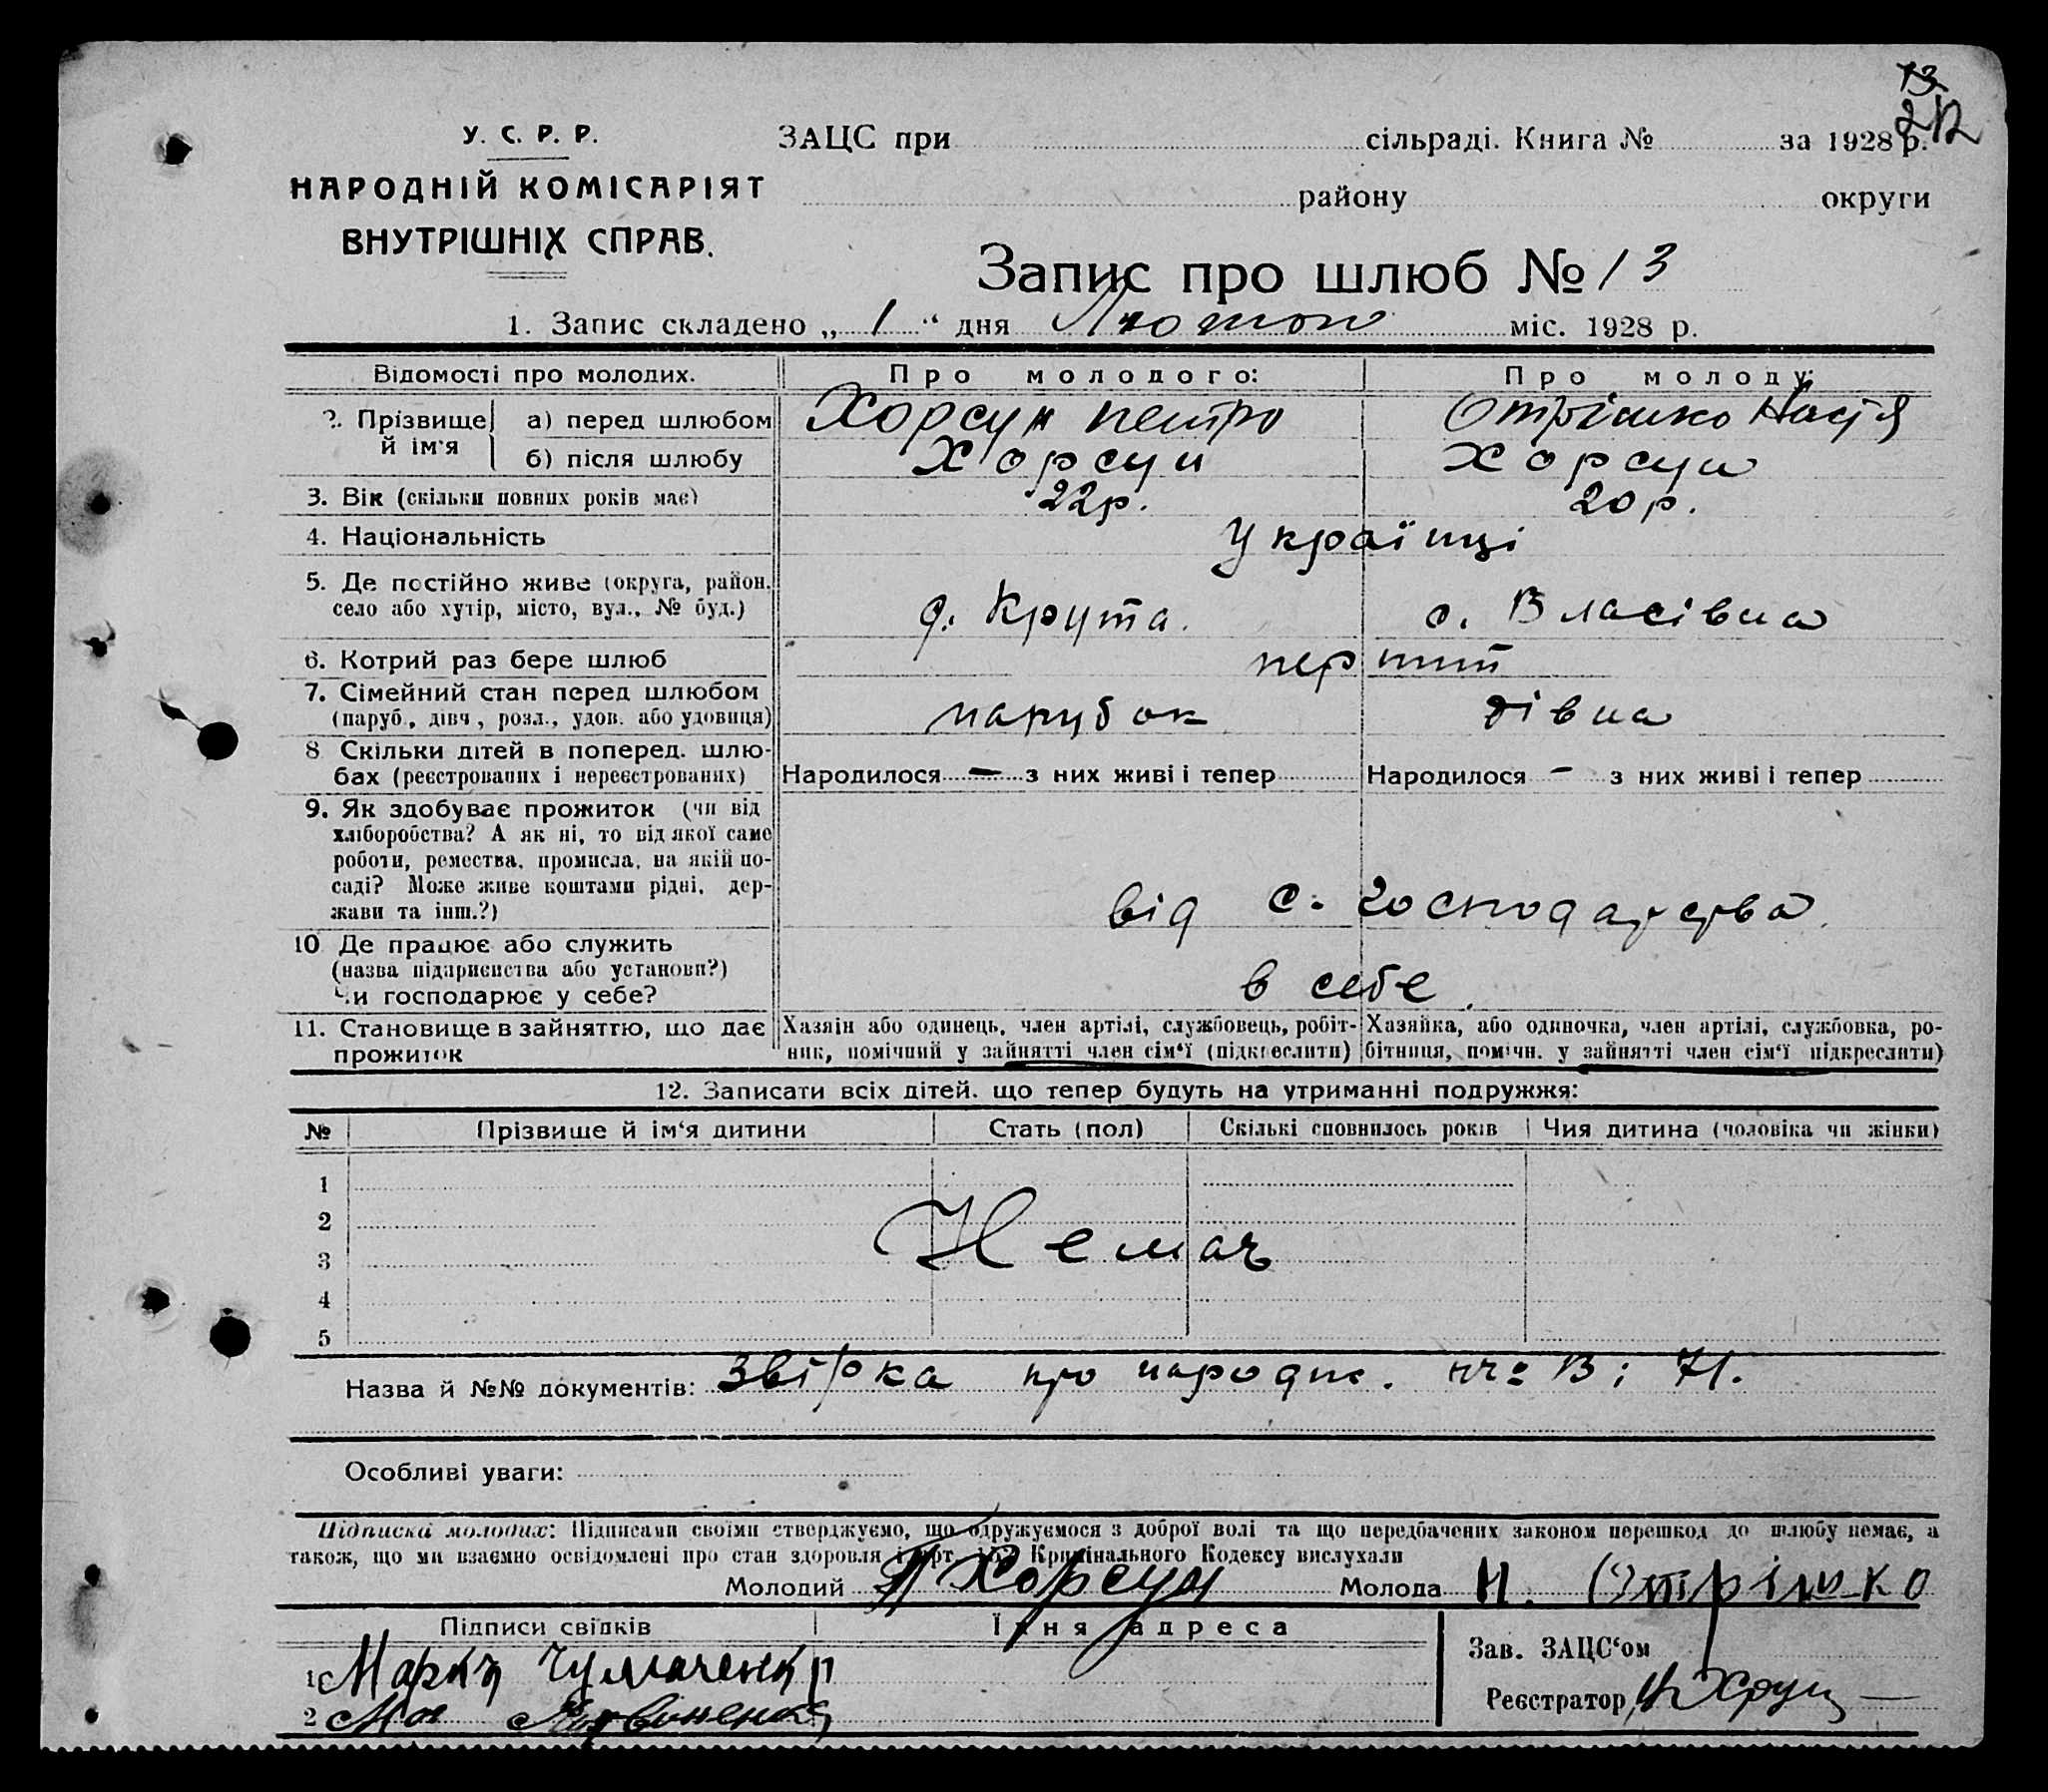 13
212
У. С. Р. Р.
НАРОДНІЙ КОМІСАРІЯТ
ВНУТРІШНІХ СПРАВ.
ЗАЦС при сільраді. Книга № за 1928 р.
району округи
Запис про шлюб № 13
1. Запис складено „ 1 “ дня Лютого міс. 1928 р.
Відомості про молодих. Про молодого: Про молоду:
2. Прізвище й ім'я а) перед шлюбом Хорсун Петро Отрішко Настя
б) після шлюбу Хорсун Хорсун
3. Вік (скільки повних років має) 22р. 20р.
4. Національність Українці
5. Де постійно живе (округа, район,
село або хутір, місто, вул., № буд.) д. Крута. с. Власівка
6. Котрий раз бере шлюб перший
7. Сімейний стан перед шлюбом
(паруб., дівч., розл., удов. або удовиця) парубок дівка
8 Скільки дітей в поперед. шлю-
бах (реєстрованих і нереєстрованих) Народилося — з них живі і тепер Народилося - з них живі і тепер
9. Як здобуває прожиток (чи від
хліборобства? А як ні, то від якої саме
роботи, ремества, промисла, на якій по-
саді? Може живе коштами рідні, дер-
жави та інш.?) від с. господарства
10 Де працює або служить
(назва підприємства або установи?)
Чи господарює у себе? в себе.
11. Становище в зайняттю, що дає
прожиток
Хазяїн або одинець, член артілі, службовець, робіт-
ник, помічний у зайнятті член сім'ї (підкреслити)
Хазяйка, або одиночка, член артілі, службовка, ро-
бітниця, помічн. у зайнятті член сім'ї підкреслити)
12. Записати всіх дітей, що тепер будуть на утриманні подружжя:
№ Прізвище й ім'я дитини Стать (пол) Скількі сповнилось років Чия дитина (чоловіка чи жінки)
1
2
3
4
5
Немає
Назва й №№ документів: Звірка про народж. № В і 71.
Особливі уваги:
Підписка молодих: Підписами своїми стверджуємо, що одружуємося з доброї волі та що передбачених законом перешкод до шлюбу немає, а
також, що ми взаємно освідомлені про стан здоровля і арт. 152 Кримінального Кодексу вислухали
Молодий П Хорсун Молода Н. Отрішко
Підписи свідків Їхня адреса
1 Марко Чумаченко
2
Зав. ЗАЦС'ом
Реєстратор